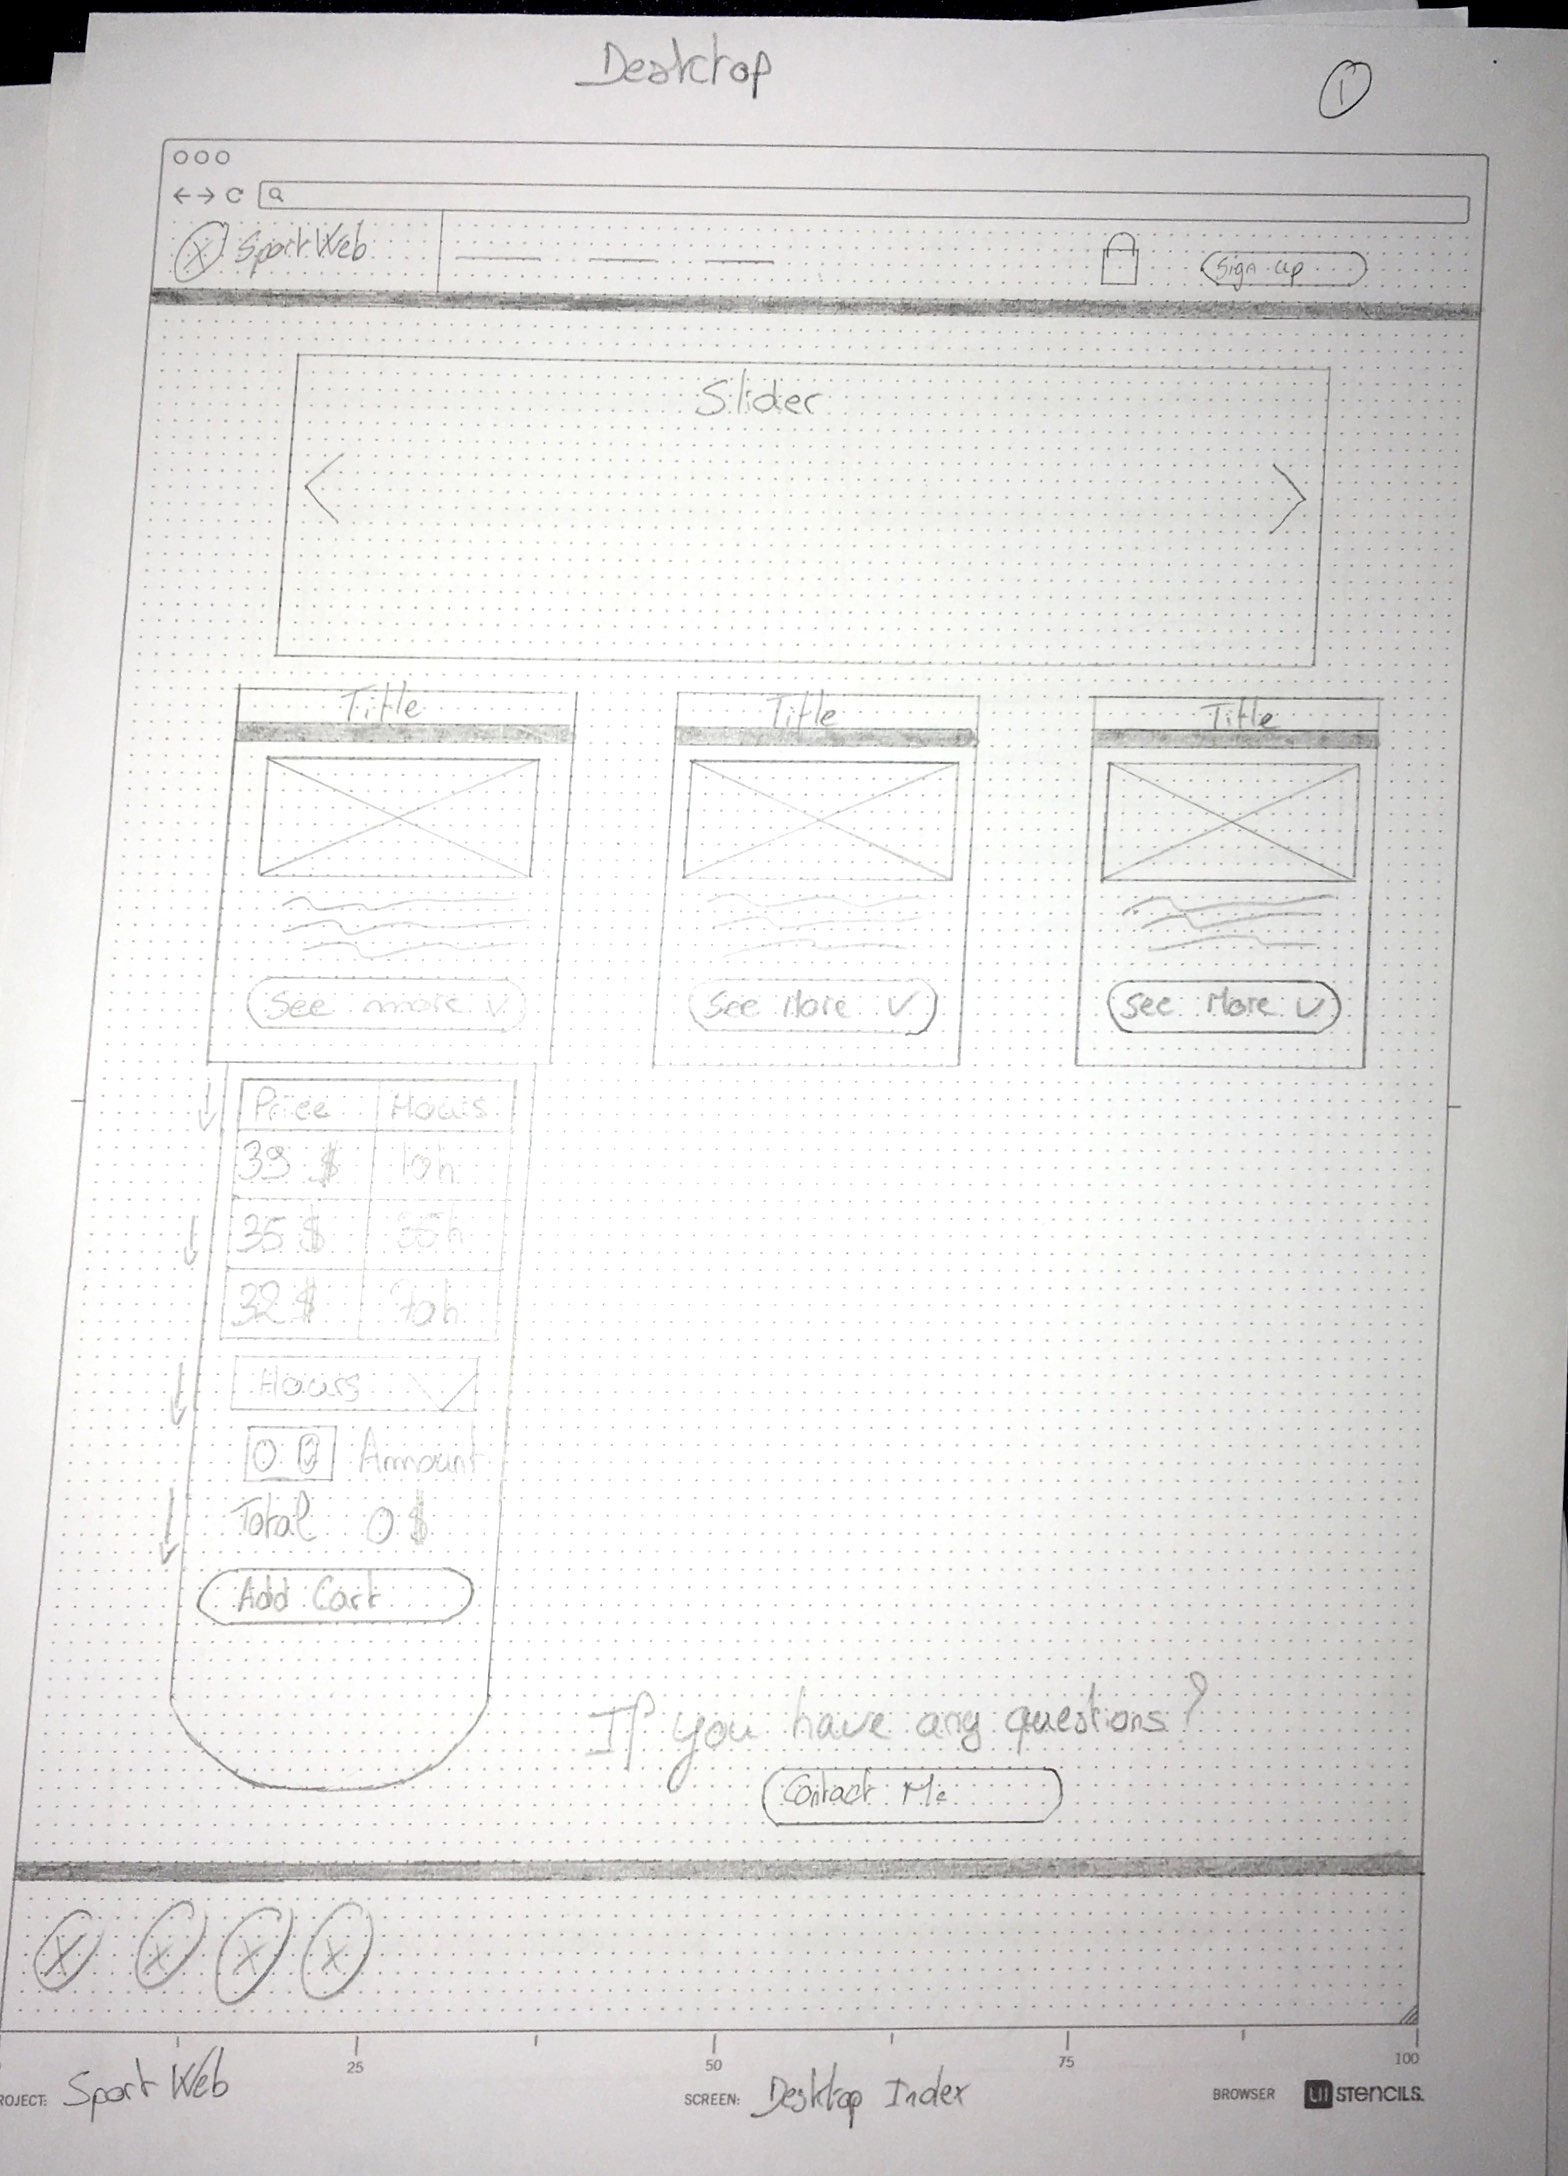 Desktop
1
Sport Web
Sign up
Slider
Title
Title
Title
See more
See More
See More
Price Hours
39 $ 10h
35 $ 35h
32 $ 70h
Hours
0 Ammount
Total 0 $
Add Cart
If you have any questions?
Contact Me
25 50 75 100
PROJECT: Sport Web
SCREEN: Desktop Index
BROWSER UI STENCILS.